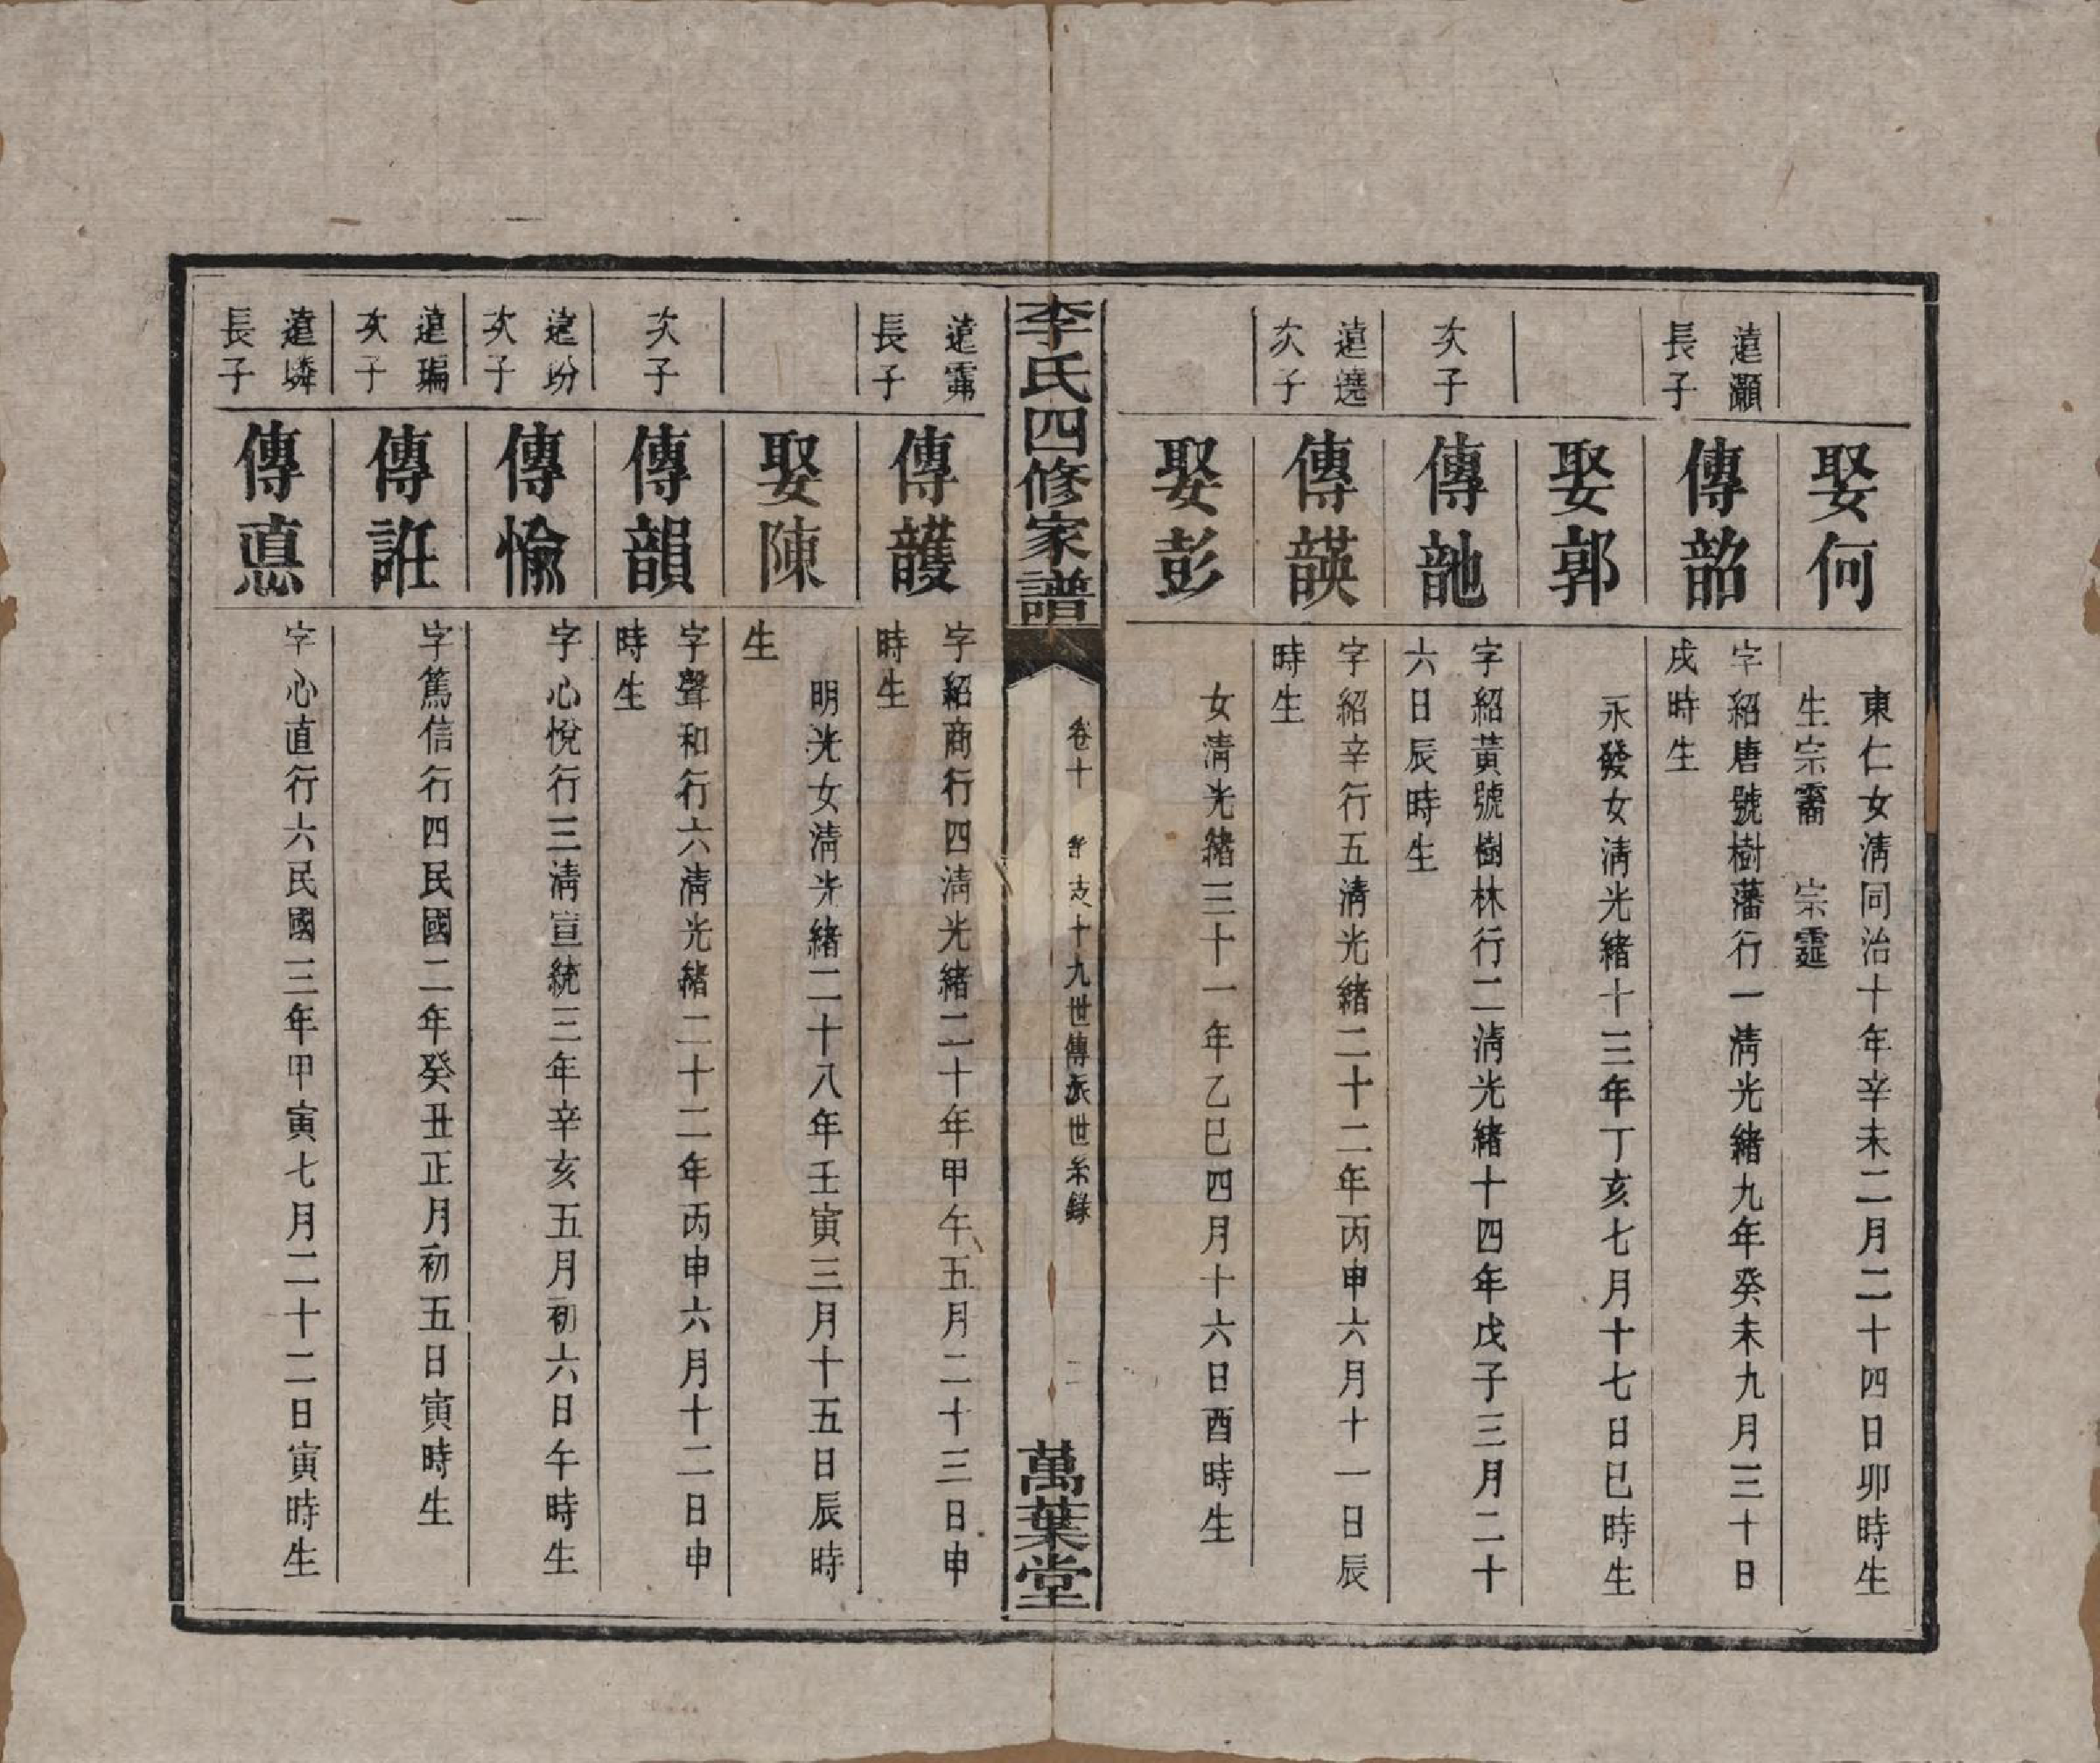 娶何
東仁女清同治十年辛未二月二十四日卯時生
生宗霱 宗霆
遠灝
長子
傳韶
字紹唐號樹藩行一清光緒九年癸未九月三十日
戌時生
娶郭
永發女清光緒十三年丁亥七月十七日巳時生
次子
傳䪧
字紹黃號樹林行二清光緒十四年戊子三月二十
六日辰時生
遠遶
次子
傳韺
字紹辛行五清光緒二十二年丙申六月十一日辰
時生
娶彭
女清光緒三十一年乙巳四月十六日酉時生
李氏四修家譜
卷十
支十九世傳派世系錄
二
萬葉堂
遠霈
長子
傳頀
字紹商行四清光緒二十年甲午五月二十三日申
時生
娶陳
明光女清光緒二十八年壬寅三月十五日辰時
生
次子
傳韻
字聲和行六清光緒二十二年丙申六月十二日申
時生
遠玢
次子
傳愉
字心悅行三清宣統三年辛亥五月初六日午時生
遠㻞
次子
傳誑
字篤信行四民國二年癸丑正月初五日寅時生
遠璘
長子
傳悳
字心直行六民國三年甲寅七月二十二日寅時生